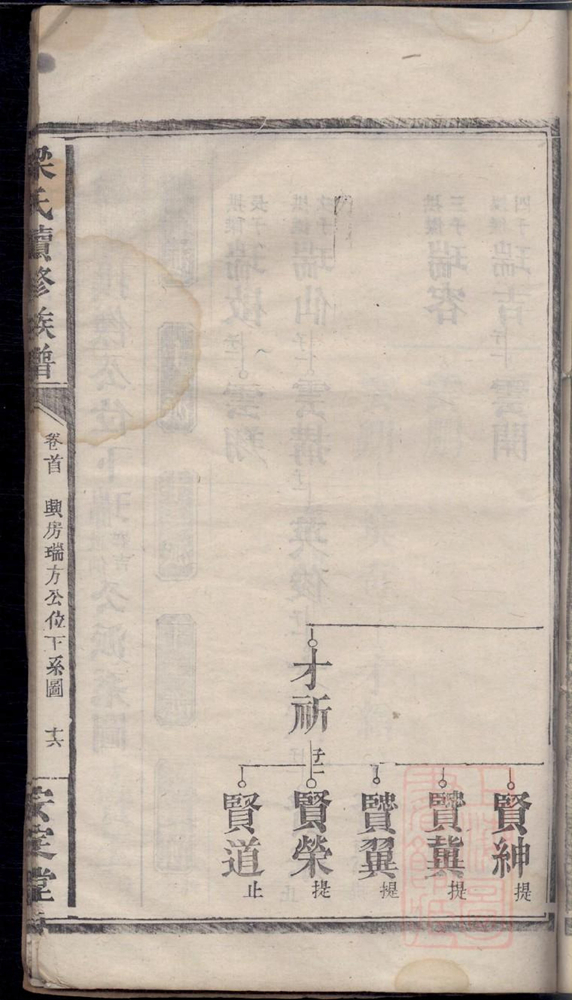 才祈 子二
賢紳 提
賢冀 提
賢翼 提
賢榮 提
賢道 止
梁氏續修族譜
卷首
房瑞方公位下系圖
十六
安定堂